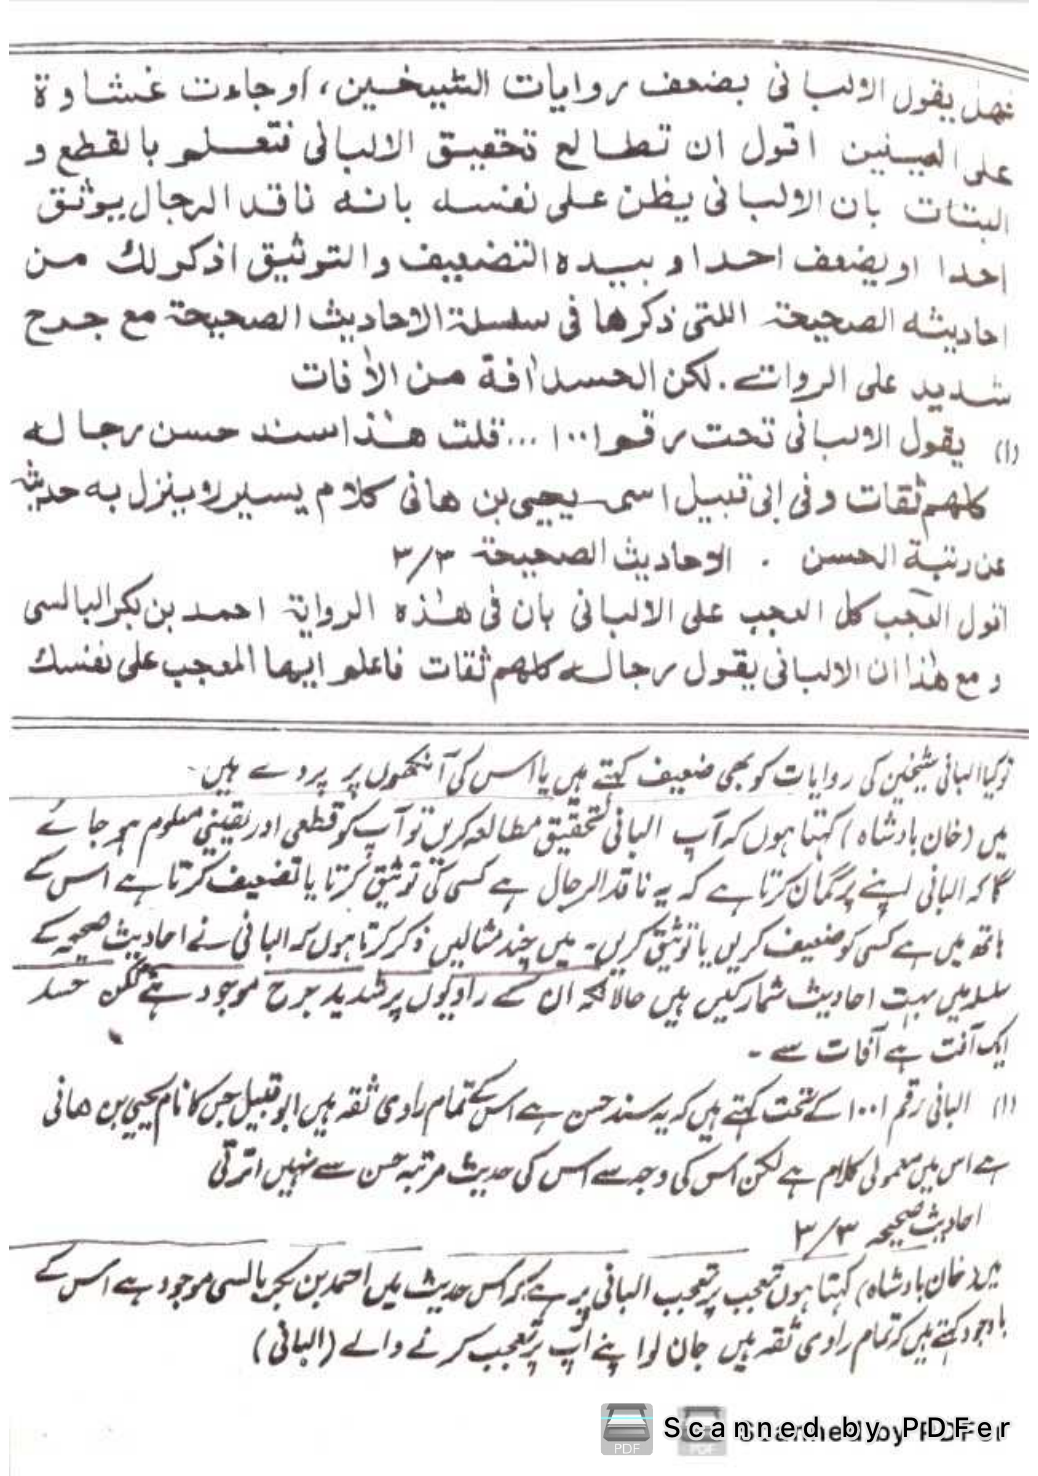 فهل يقول الالبانى بضعف روايات الشيخين، اوجاءت غشاوة
على العينين اقول ان تطالع تحقيق الالبانى فتعلم بالقطع و
البتات بان الالبانى يظن على نفسه بانه ناقد الرجال يوثق
احدا او يضعف احدا و بيده التضعيف والتوثيق اذكرلك من
احاديثه الصحيحة اللتى ذكرها فى سلسلة الاحاديث الصحيحة مع جرح
شديد على الروات. لكن الحسد اٰفة من الاٰفات
(۱) يقول الالبانى تحت رقم ۱۰۰۱ ... قلت هٰذا سند حسن رجاله
كلهم ثقات وفى ابى قبيل اسمه يحيى بن هانى كلام يسير لا ينزل به حديثه
عن رتبة الحسن . الاحاديث الصحيحة ۳/۳
اقول العجب كل العجب على الالبانى بان فى هٰذه الرواية احمد بن بكر البالسى
و مع هٰذا ان الالبانى يقول رجاله كلهم ثقات فاعلم ايها المعجب على نفسك
تو کیا البانی شیخین کی روایات کو بھی ضعیف کہتے ہیں یا اس کی آنکھوں پر پردے ہیں۔
میں (خان بادشاہ) کہتا ہوں کہ آپ البانی تحقیق مطالعہ کریں تو آپ کو قطعی اور یقینی معلوم ہو جائے
گا کہ البانی اپنے پر گمان کرتا ہے کہ یہ ناقد الرجال ہے کسی کی توثیق کرتا یا تضعیف کرتا ہے اس کے
ہاتھ میں ہے کسی کو ضعیف کریں یا توثیق کریں۔ میں چند مثالیں ذکر کرتا ہوں کہ البانی نے احادیث صحیحہ کے
سلسلہ میں بہت احادیث شمار کیں ہیں حالانکہ ان کے راویوں پر شدید جرح موجود ہے لکن حسد
ایک آفت ہے آفات سے ۔
(۱) البانی رقم ۱۰۰۱ کے تحت کہتے ہیں کہ یہ سند حسن ہے اس کے تمام راوی ثقہ ہیں ابو قبیل جس کا نام یحیی بن ھانی
ہے اس میں معمولی کلام ہے لکن اس کی وجہ سے اس کی حدیث مرتبہ حسن سے نہیں اترتی
احادیث صحیحہ ۳/۳
میں (خان بادشاہ) کہتا ہوں تعجب پر تعجب البانی پر ہے کہ اس حدیث میں احمد بن بکر بالسی موجود ہے اس کے
باوجود کہتے ہیں کہ تمام راوی ثقہ ہیں جان لو اپنے آپ پر تعجب کرنے والے (البانی)
Scanned by PDFer
Scanned by PDFer